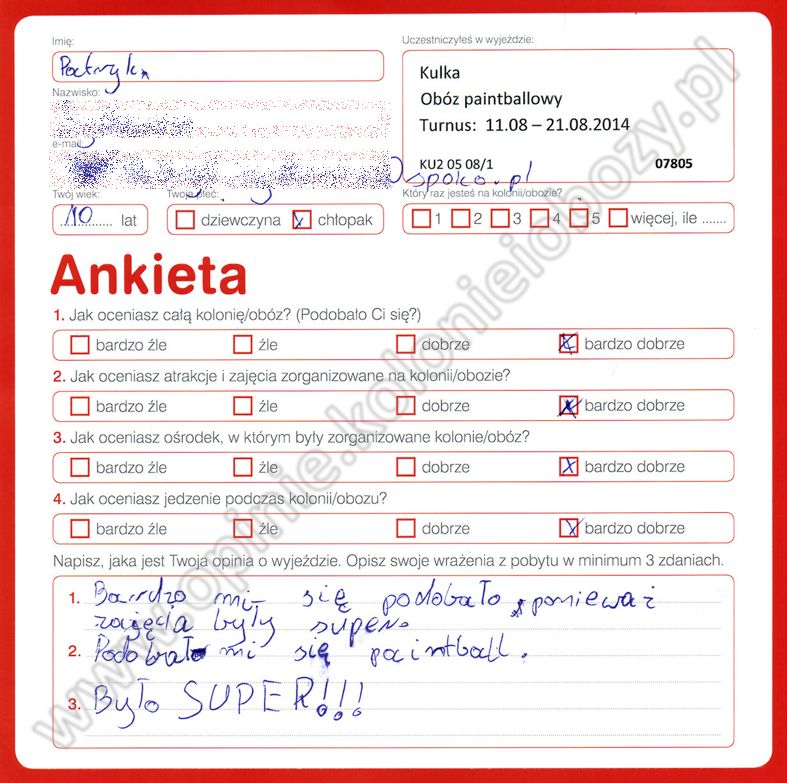 Imię:
Patryk
Uczestniczyłeś w wyjeździe:
Kulka
Obóz paintballowy
Turnus: 11.08 – 21.08.2014
KU2 05 08/1 07805
Nazwisko:
e-mail:
spoko.pl
Twój wiek: Twoja płeć: Który raz jesteś na kolonii/obozie?
10 lat dziewczyna x chłopak 1 2 3 4 5 więcej, ile .......
Ankieta
1. Jak oceniasz całą kolonię/obóz? (Podobało Ci się?)
bardzo źle źle dobrze x bardzo dobrze
2. Jak oceniasz atrakcje i zajęcia zorganizowane na kolonii/obozie?
bardzo źle źle dobrze x bardzo dobrze
3. Jak oceniasz ośrodek, w którym były zorganizowane kolonie/obóz?
bardzo źle źle dobrze x bardzo dobrze
4. Jak oceniasz jedzenie podczas kolonii/obozu?
bardzo źle źle dobrze x bardzo dobrze
Napisz, jaka jest Twoja opinia o wyjeździe. Opisz swoje wrażenia z pobytu w minimum 3 zdaniach.
1. Bardzo mi się podobało, ponieważ
zajęcia były super.
2. Podobał mi się paintball.
3. Było SUPER!!!
www.opinie.kolonieiobozy.pl